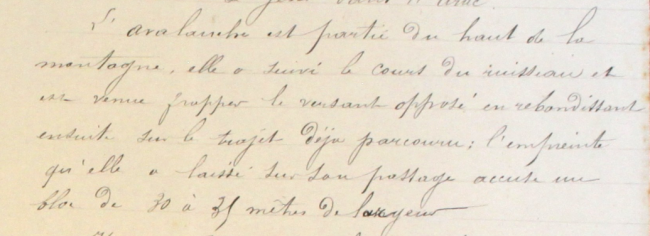 L'avalanche est partie du haut de la
montagne, elle a suivi le cours du ruisseau et
est venue frapper le versant opposé en rebondissant
ensuite sur le trajet déja parcouru; l'empreinte
qu'elle a laissé sur son passage accuse un
bloc de 30 à 35 mètres de largeur